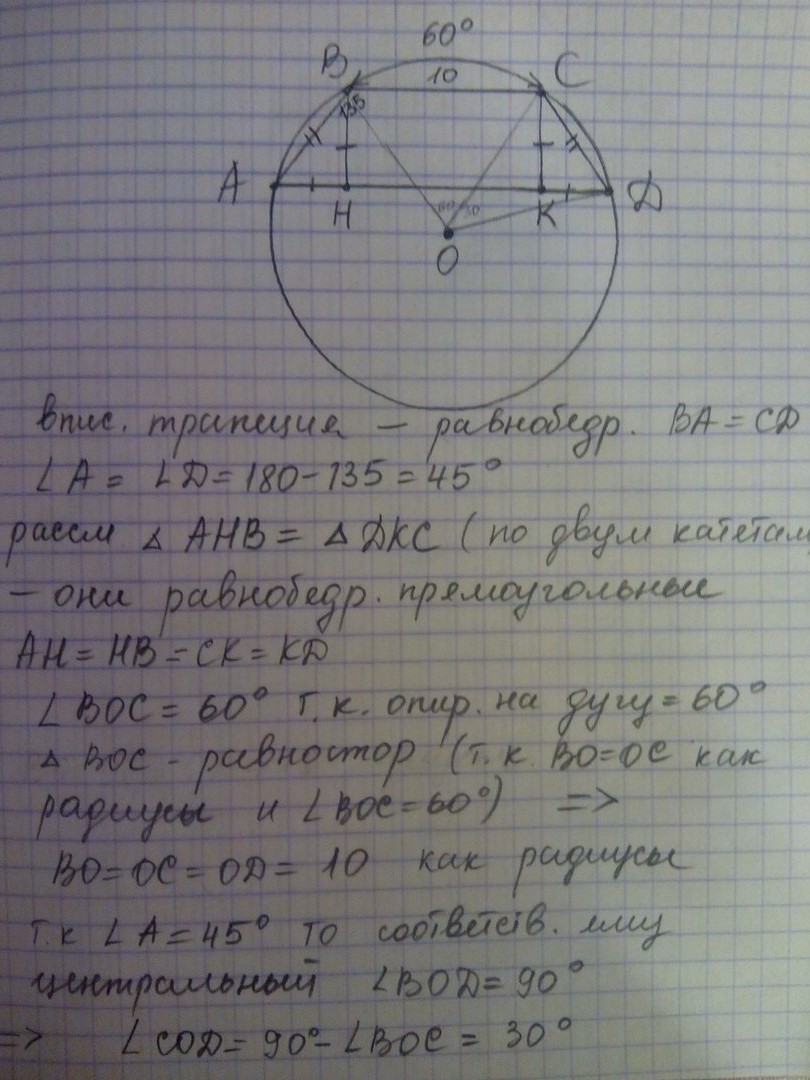 60°
B 10 C
135
A H K Д
60 30
O
впис. трапеция — равнобедр. BA = CD
∠A = ∠Д = 180 - 135 = 45°
рассм △ AHB = △ ДKC (по двум катетам
— они равнобедр. прямоугольные
AH = HB = CK = KД
∠BOC = 60° т.к. опир. на дугу = 60°
△ BOC - равностор (т.к BO=OC как
радиусы и ∠BOC = 60°) =>
BO = OC = OД = 10 как радиусы
т.к ∠A = 45° то соответств. ему
центральный ∠BOД = 90°
=> ∠COД = 90° - ∠BOC = 30°